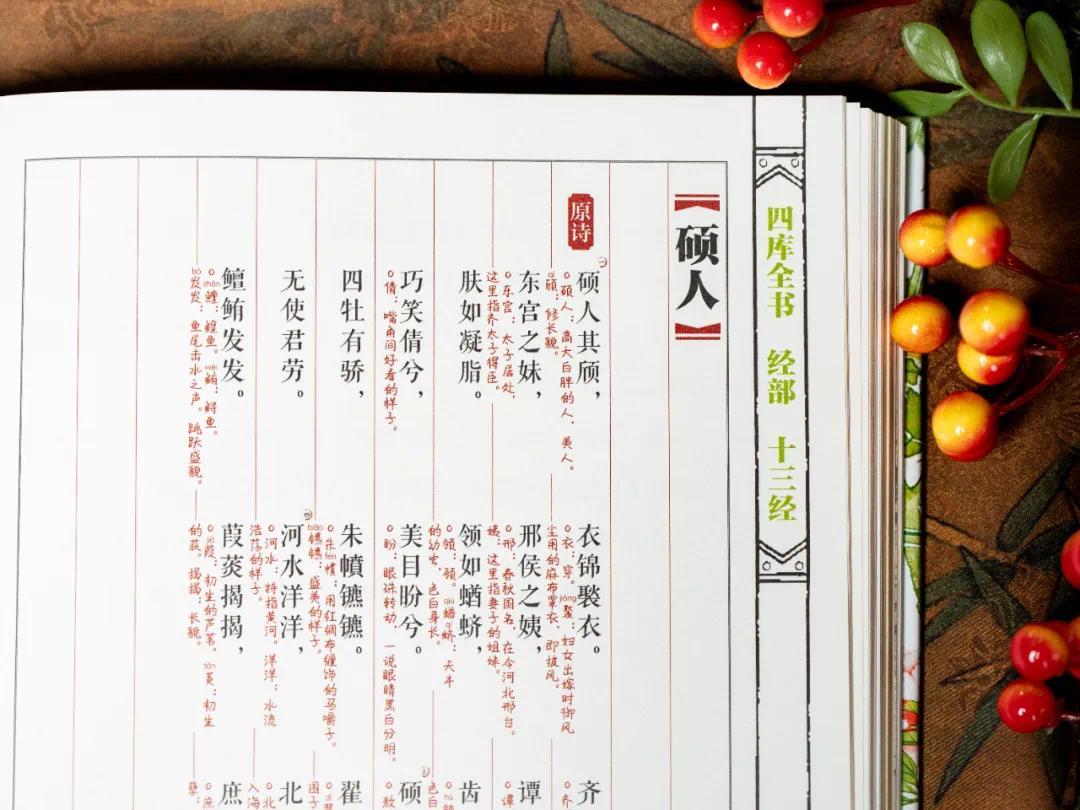 四库全书 经部 十三经
【硕人】
原诗
硕人其颀， 衣锦褧衣。 齐
。硕人：高大白胖的人，美人。
颀：修长貌。
。衣：穿。褧：妇女出嫁时御风
jiǒng
尘用的麻布罩衣，即披风。
东宫之妹， 邢侯之姨， 谭
。东宫：太子居处，
这里指齐太子得臣。
。邢：春秋国名，在今河北邢台。
姨：这里指妻子的姐妹。
肤如凝脂。 领如蝤蛴， 齿
。领：颈。蝤蛴：天牛
qiú
的幼虫，色白身长。
巧笑倩兮， 美目盼兮。 硕
。倩：嘴角间好看的样子。
。盼：眼珠转动，一说眼睛黑白分明。
四牡有骄， 朱幩镳镳。 翟
。朱幩：用红绸布缠饰的马嚼子。
fén
镳镳：盛美的样子。
biāo
无使君劳。 河水洋洋， 北
。河水：特指黄河。洋洋：水流
浩荡的样子。
鳣鲔发发。 葭菼揭揭， 庶
。鳣：鳇鱼。鲔：鲟鱼。
zhān
wěi
发发：鱼尾击水之声。跳跃盛貌。
bō
。葭：初生的芦苇。菼：初生
jiā
tǎn
的荻。揭揭：长貌。